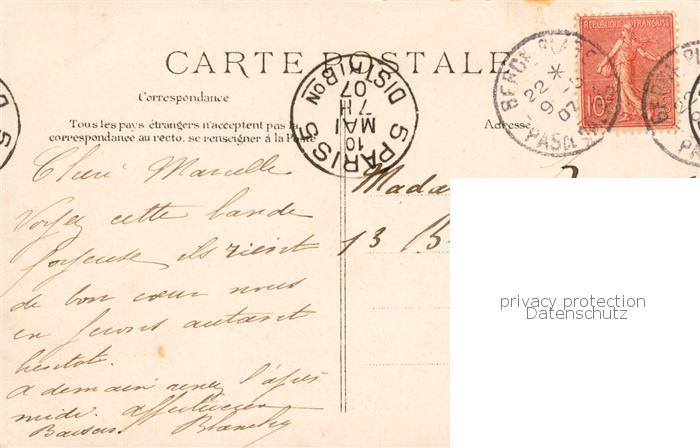 CARTE POSTALE
REPUBLIQUE FRANÇAISE
10
BERCK PLAGE
22
9
07
PAS
PARIS 5
10
MAI
07
7H
DISTRIBON
Correspondance
Tous les pays étrangers n'acceptent pas la
correspondance au recto, se renseigner à la Poste
Adresse
Cheri Marcelle
Voyez cette bande
joyeuse ils rient
de bon cœur nous
en ferons autant
bientot.
A demain venez l'après
midi. affectueux
Baisers. Blanche
Mada
13 B
privacy protection
Datenschutz